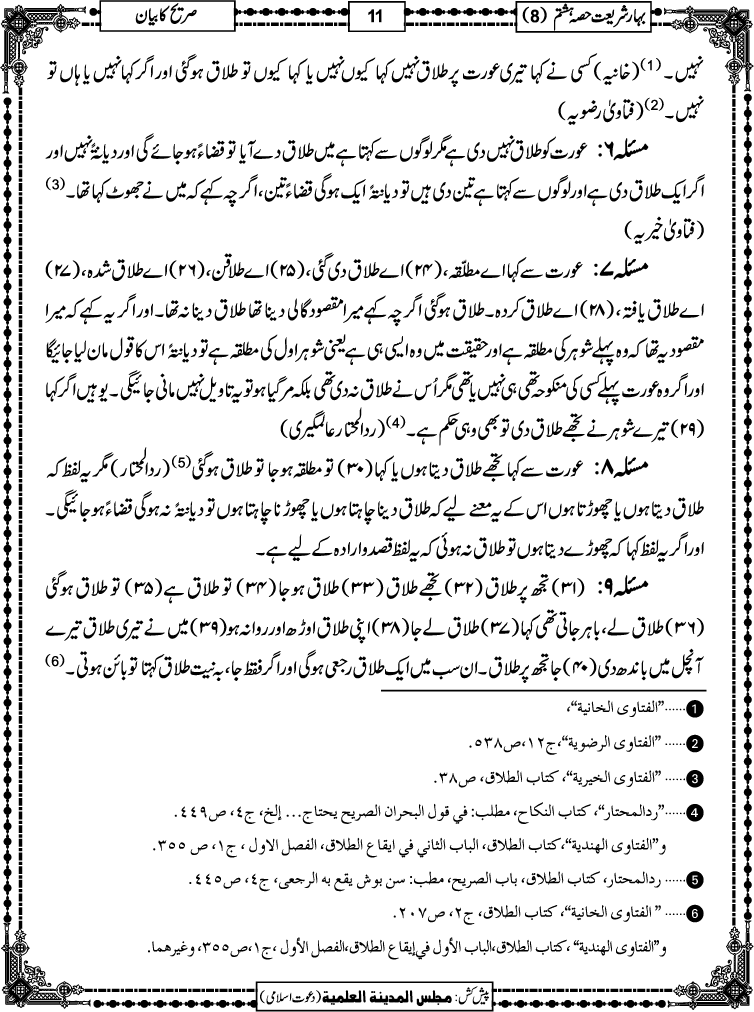 بہارِ شریعت حصہ ہشتم (8)
11
صریح کا بیان
نہیں۔(1) (خانیہ) کسی نے کہا تیری عورت پر طلاق نہیں کہا کیوں نہیں یا کہا کیوں تو طلاق ہوگئی اور اگر کہا نہیں یا ہاں تو
نہیں۔(2) (فتاویٰ رضویہ)
مسئلہ ۶: عورت کو طلاق نہیں دی ہے مگر لوگوں سے کہتا ہے میں طلاق دے آیا تو قضاءً ہو جائے گی اور دیانۃً نہیں اور
اگر ایک طلاق دی ہے اور لوگوں سے کہتا ہے تین دی ہیں تو دیانۃً ایک ہوگی قضاءً تین، اگر چہ کہے کہ میں نے جھوٹ کہا تھا۔(3)
(فتاویٰ خیریہ)
مسئلہ ۷: عورت سے کہا اے مطلّقہ، (۲۴) اے طلاق دی گئی، (۲۵) اے طلاقن، (۲۶) اے طلاق شدہ، (۲۷)
اے طلاق یافتہ، (۲۸) اے طلاق کردہ۔ طلاق ہوگئی اگر چہ کہے میرا مقصود گالی دینا تھا طلاق دینا نہ تھا۔ اور اگر یہ کہے کہ میرا
مقصود یہ تھا کہ وہ پہلے شوہر کی مطلقہ ہے اور حقیقت میں وہ ایسی ہی ہے یعنی شوہر اول کی مطلقہ ہے تو دیانۃً اس کا قول مان لیا جائیگا
اور اگر وہ عورت پہلے کسی کی منکوحہ تھی ہی نہیں یا تھی مگر اُس نے طلاق نہ دی تھی بلکہ مر گیا ہو تو یہ تاویل نہیں مانی جائیگی۔ یوہیں اگر کہا
(۲۹) تیرے شوہر نے تجھے طلاق دی تو بھی وہی حکم ہے۔(4) (ردالمحتار عالمگیری)
مسئلہ ۸: عورت سے کہا تجھے طلاق دیتا ہوں یا کہا (۳۰) تو مطلقہ ہو جا تو طلاق ہوگئی(5) (ردالمحتار) مگر یہ لفظ کہ
طلاق دیتا ہوں یا چھوڑتا ہوں اس کے یہ معنے لیے کہ طلاق دینا چاہتا ہوں یا چھوڑنا چاہتا ہوں تو دیانۃً نہ ہوگی قضاءً ہو جائیگی۔
اور اگر یہ لفظ کہا کہ چھوڑے دیتا ہوں تو طلاق نہ ہوئی کہ یہ لفظ قصد و ارادہ کے لیے ہے۔
مسئلہ ۹: (۳۱) تجھ پر طلاق (۳۲) تجھے طلاق (۳۳) طلاق ہو جا (۳۴) تو طلاق ہے (۳۵) تو طلاق ہوگئی
(۳۶) طلاق لے، باہر جاتی تھی کہا (۳۷) طلاق لے جا (۳۸) اپنی طلاق اوڑھ اور روانہ ہو (۳۹) میں نے تیری طلاق تیرے
آنچل میں باندھ دی (۴۰) جا تجھ پر طلاق۔ ان سب میں ایک طلاق رجعی ہوگی اور اگر فقط جا، بہ نیت طلاق کہتا تو بائن ہوتی۔(6)
1 ......"الفتاوى الخانية"،
2 ...... "الفتاوى الرضوية"، ج١٢، ص٥٣٨.
3 ...... "الفتاوى الخيرية"، كتاب الطلاق، ص٣٨.
4 ......"ردالمحتار"، كتاب النكاح، مطلب: في قول البحران الصريح يحتاج... إلخ، ج٤، ص٤٤٩.
و"الفتاوى الهندية"، كتاب الطلاق، الباب الثاني في ايقاع الطلاق، الفصل الاول ، ج١، ص ٣٥٥.
5 ...... ردالمحتار، كتاب الطلاق، باب الصريح، مطب: سن بوش يقع به الرجعى، ج٤، ص٤٤٥.
6 ...... " الفتاوى الخانية"، كتاب الطلاق، ج٢، ص٢٠٧.
و"الفتاوى الهندية" ، كتاب الطلاق، الباب الأول في إيقاع الطلاق، الفصل الأول ، ج١، ص٣٥٥، وغيرهما.
پیش کش: مجلس المدينة العلمية (دعوت اسلامی)